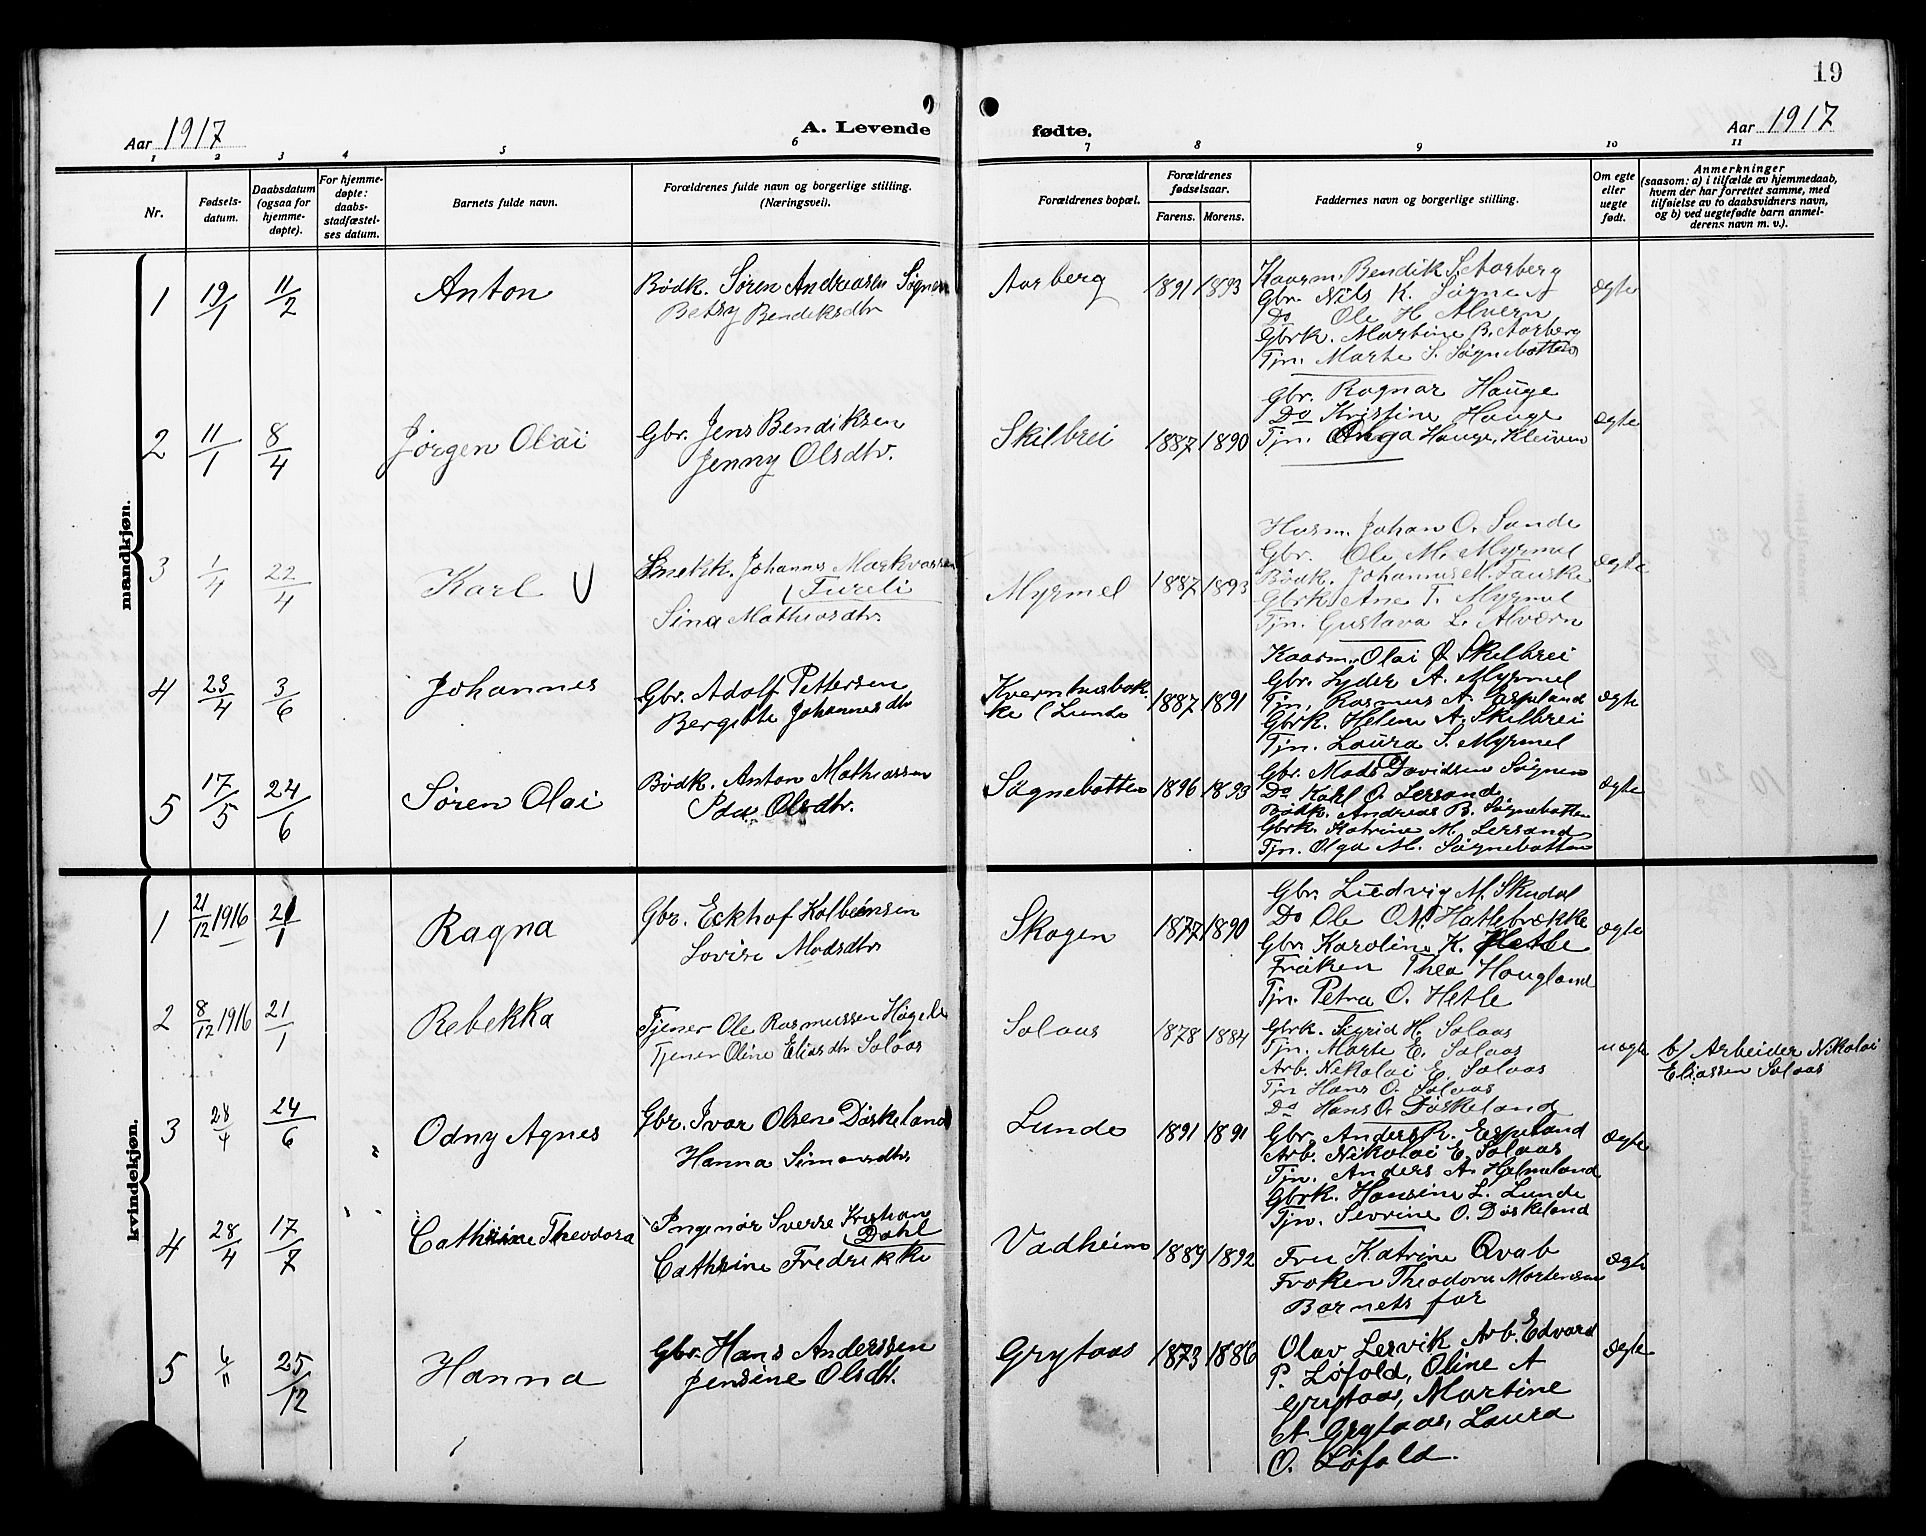 19
Aar 1917
A. Levende fødte.
Aar 1917
1 2 3 4 5 6 7 8 9 10 11
Nr.
Fødsels-
datum.
Daabsdatum
(ogsaa for
hjemme-
døpte).
For hjemme-
døpte:
daabs-
stadfæstel-
ses datum.
Barnets fulde navn.
Forældrenes fulde navn og borgerlige stilling.
(Næringsvei).
Forældrenes bopæl.
Forældrenes
fødselsaar.
Farens. Morens.
Faddernes navn og borgerlige stilling.
Om egte
eller
uegte
født.
Anmerkninger
(saasom: a) i tilfælde av hjemmedaab,
hvem der har forrettet samme, med
tilføielse av to daabsvidners navn,
og b) ved uegtefødte barn anmel-
derens navn m. v.).
mandkjøn.
1 19/1 11/2 Anton
Bødk. Søren Andreasen Søgnen
Betsy Bendiksdtr
Aarberg 1891 1893
Kaarm. Bendik S. Aarberg
Gbr. Nils K. Søgnen
Do Ole H. Alvern
Gbrk. Martine B. Aarberg
Tjn. Marte S. Søgnebotten
ægte
2 11/1 8/4 Jørgen Olai
Gbr. Jens Bendiksen
Jenny Olsdtr.
Skilbrei 1887 1890
Gbr. Ragnar Hauge
Do Kristine Hauge
Tjn. Anga Hauge, Kleiven
ægte
3 1/4 22/4 Karl
Snekk. Johannes Markvassen
Fureli
Sina Mathiasdtr
Myrmel 1887 1893
Husm. Johan O. Sande
Gbr. Ole M. Myrmel
Bødk. Johannes M. Fauske
Gbrk. Ane T. Myrmel
Tjn. Gustava L. Alværn
ægte
4 23/4 3/6 Johannes
Gbr. Adolf Pettersen
Bergitte Johannesdtr
Kvernhusbak-
ke (Lunde 1887 1891
Kaarm. Olai O. Skilbrei
Gbr. Lyder A. Myrmel
Tjn. Rasmus A. Espeland
Gbrk. Helene A. Skilbrei
Tjn. Laura S. Myrmel
ægte
5 17/5 24/6 Søren Olai
Bødk. Anton Mathiassen
Olsdtr.
Søgnebotten 1896 1893
Gbr. Mads Davidsen Søgnen
Do Karl O. Lersand
Bødk. Andreas B. Søgnebotten
Gbrk. Katrine M. Lersand
Tjn. Olga M. Søgnebotten
ægte
kvindekjøn.
1 21/12 1916 21/1 Ragna
Gbr. Eckhof Kolbeinsen
Lovise Madsdtr
Skogen 1877 1890
Gbr. Ludvig M. Skudal
Do Ole O. M. Hatlebrække
Gbr. Karoline K. Hetle
Frøken Thea Hougland
Tjn. Petra O. Hetle
ægte
2 8/12 1916 21/1 Rebekka
Tjener Ole Rasmussen
Tjener Oline Eliasdtr Solaas
Solaas 1878 1884
Gbrk. Sigrid H. Solaas
Tjn. Marte E. Solaas
Arb. Nikolai E. Solaas
Tjn Hans O. Solaas
Do Hans O. Døskeland
uægte
b/ Arbeider Nikolai
Eliassen Solaas
3 28/4 24/6 Odny Agnes
Gbr. Ivar Olsen Døskeland
Hanna Simonsdtr
Lunde 1891 1891
Gbr. Anders R. Espeland
Arb. Nikolai E. Solaas
Tjn. Anders A. Hjelmeland
Gbrk. Hansine L. Lunde
Tjn. Sevrine O. Døskeland
ægte
4 28/4 17/7 Cathrine Theodora
Ingeniør Sverre Kristian
Dahl
Cathrine Fredrikke
Vadheim 1889 1892
Fru Katrine Qvab
Frøken Theodora Mortensen
Barnets far
ægte
5 6/11 25/12 Hanna
Gbr. Hans Anderssen
Jensine Olsdtr.
Grytaas 1873 1886
Olav Lervik Arb. Edvard
P. Løfold, Oline A
Grytaas, Martine
A. Grytaas, Laura
O. Løfold.
ægte